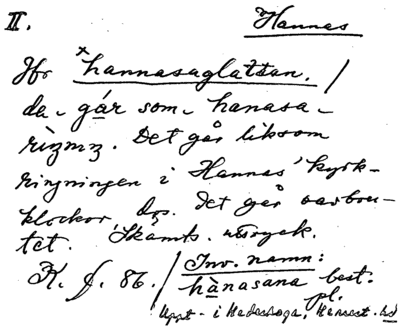 II. Hannas
Jfr ×hannasaglattan. /
da - går som - hanasa -
riŋniŋ. Det går liksom
ringningen i Hannas' kyrk-
klockor, dvs. det går oavbru-
tet. Skämts. uttryck.
K. f. 86. / Inv. namn:
hànasana best.
pl.
Uppt. i Hannas.